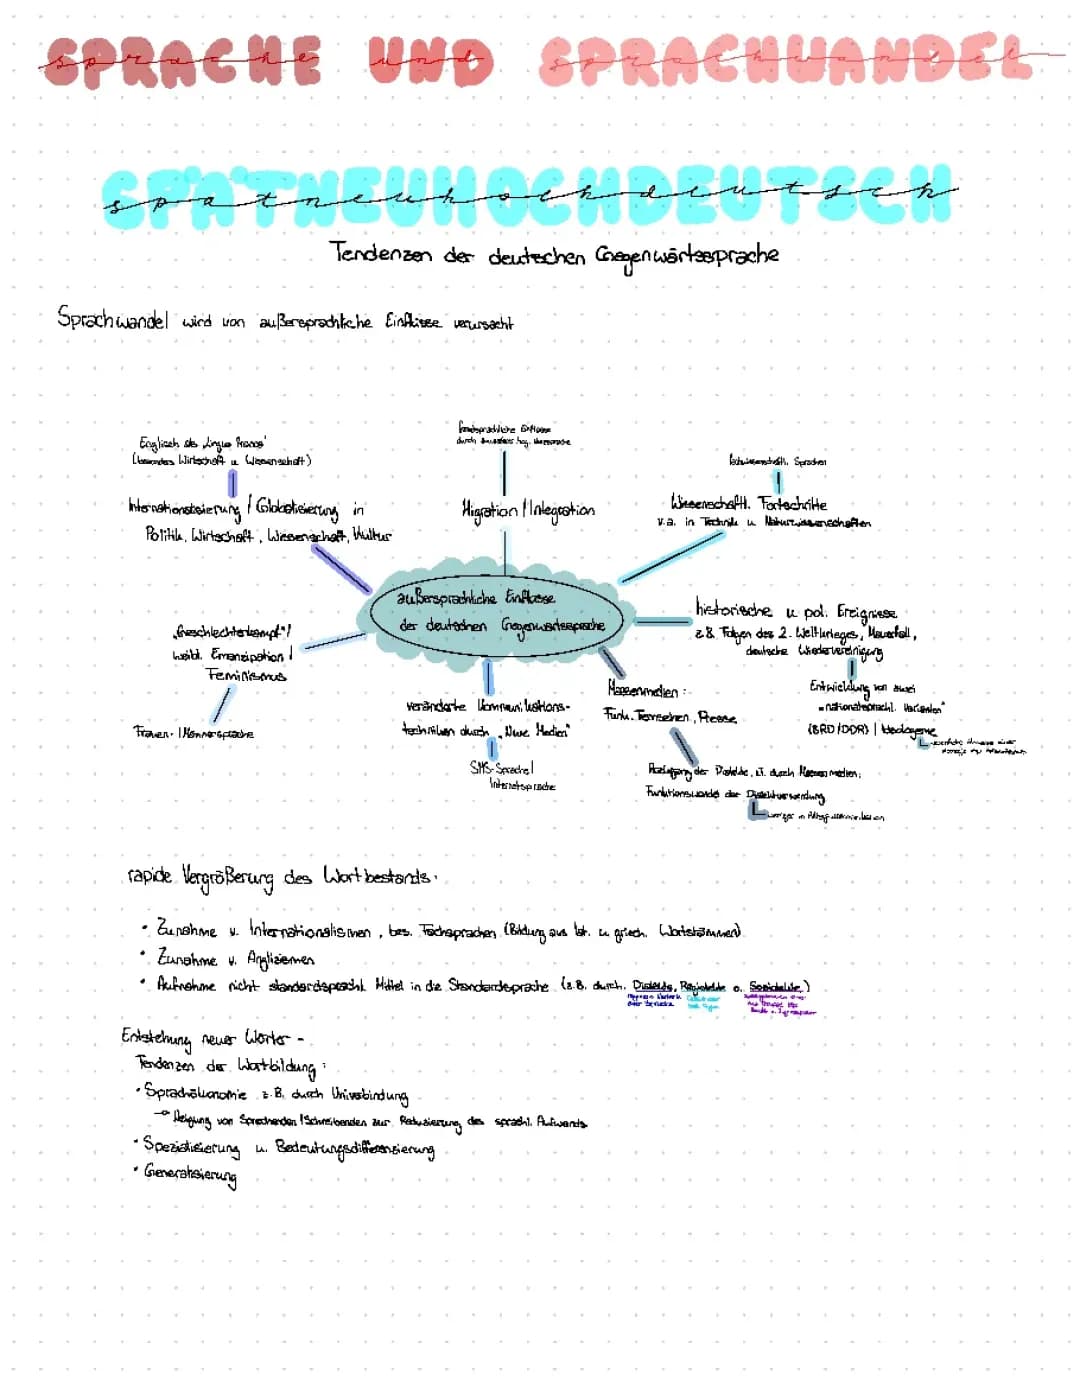 SPRACHE UND SPRACHWANDEL
sprache und sprachwandel
SPÄTNEUHOCHDEUTSCH
spatneuhochdeutsch
Tendenzen der deutschen Gegenwärtssprache
Sprachwandel wird von außersprachliche Einflüsse verursacht
Englisch als "Lingua Franca"
(besonders Wirtschaft u. Wissenschaft)
Internationalisierung / Globalisierung in
Politik, Wirtschaft, Wissenschaft, Kultur
fremdsprachliche Einflüsse
durch
Migration / Integration
Sprachen
Wissenschaftl. Fortschritte
v.a. in Technik u. Naturwissenschaften
außersprachliche Einflüsse
der deutschen Gegenwartssprache
historische u. pol. Ereignisse
z.B. Folgen des 2. Weltkrieges, Mauerfall,
deutsche Wiedervereinigung
Entwicklung von zwei
"nationalsprachl. Varianten"
(BRD/DDR) | Ideologeme
"Geschlechterkampf"/
weibl. Emanzipation /
Feminismus
Frauen- / Männersprache
veränderte Kommunikations-
techniken durch "Neue Medien"
SMS-Sprache/
Internetsprache
Massenmedien:
Funk, Fernsehen, Presse
der Dialekte, z.T. durch Massenmedien;
Funktionswandel der Dialektverwendung
weniger in Alltagskommunikation
rapide Vergrößerung des Wortbestands:
• Zunahme v. Internationalismen, bes. Fachsprachen (Bildung aus lat. u. griech. Wortstämmen)
• Zunahme v. Anglizismen
• Aufnahme nicht standardsprachl. Mittel in die Standardsprache (z.B. durch Dialekte, Regiolekte o. Soziolekte)
Entstehung neuer Wörter -
Tendenzen der Wortbildung:
• Sprachökonomie z.B. durch Univerbindung
→ Neigung von Sprechenden/Schreibenden zur Reduzierung des sprachl. Aufwands
• Spezialisierung u. Bedeutungsdifferenzierung
• Generalisierung